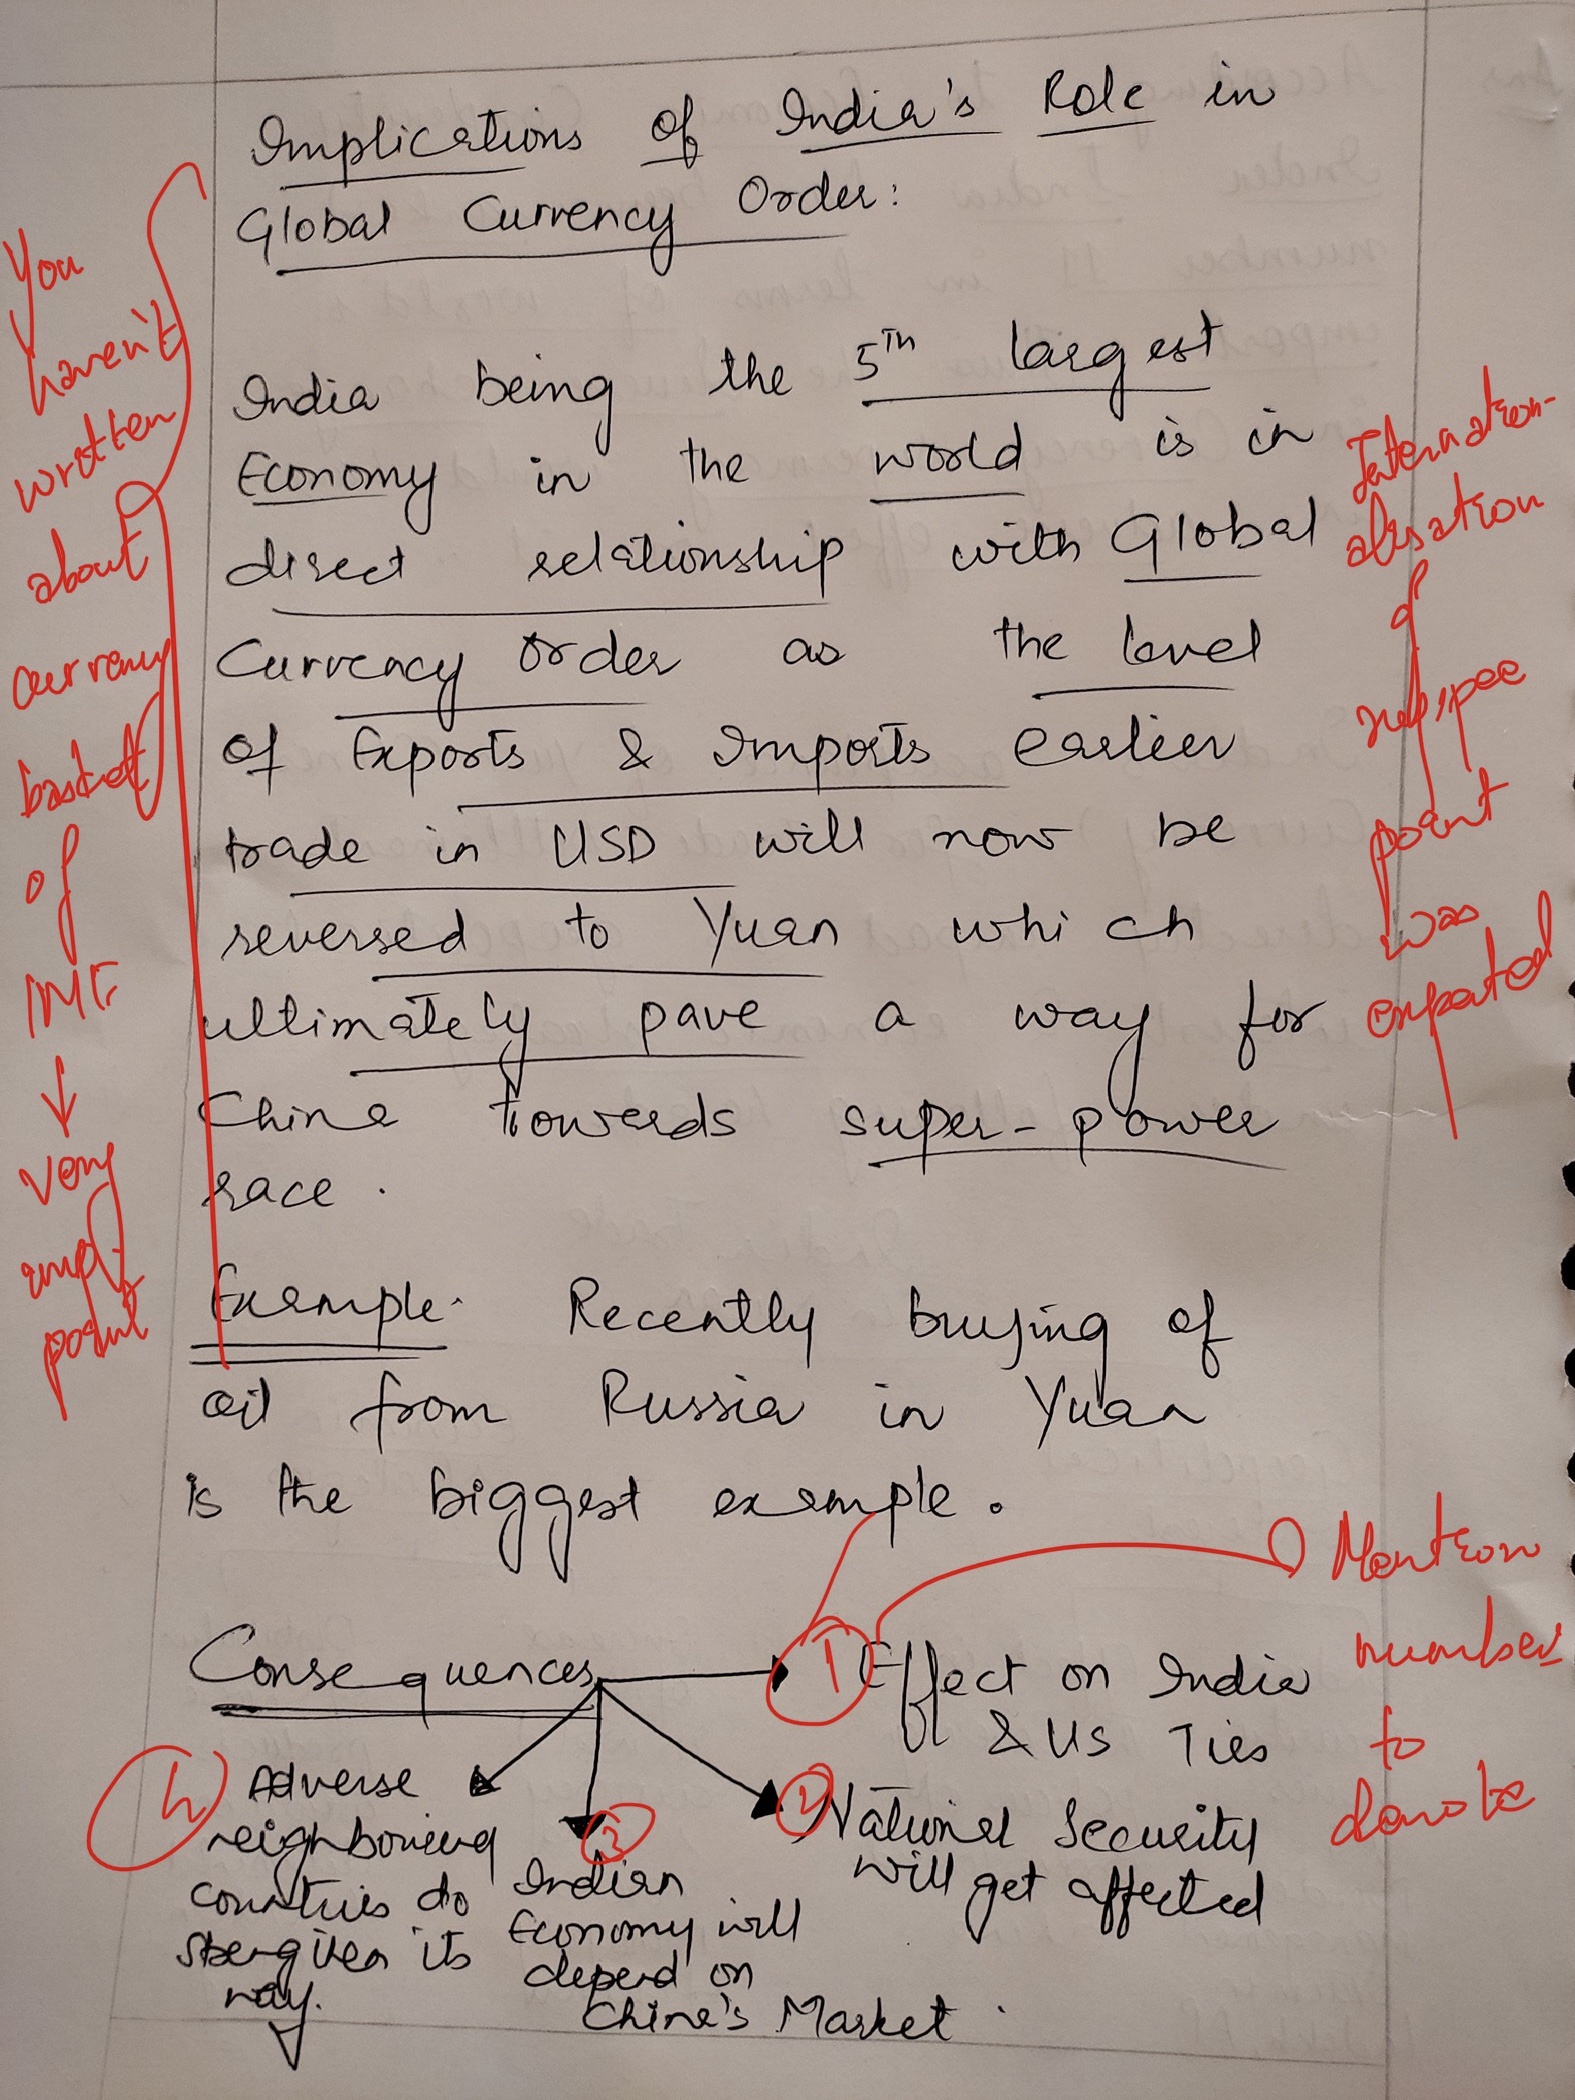 Implications of India's Role in
Global Currency Order:
India being the 5th largest
Economy in the world is in
direct relationship with Global
Currency order as the level
of Exports & Imports earlier
trade in USD will now be
reversed to Yuan which
ultimately pave a way for
China towards super-power
race.
Example- Recently buying of
oil from Russia in Yuan
is the biggest example.
Consequences
1 Effect on India
& US Ties
2 National Security
will get affected
3
Indian
Economy will
depend on
China's Market.
4 Adverse
neighbouring
countries do
its
way.
You
haven't
written
about
currency
basket
of
IMF
↓
very
imp.
point
Internation-
alisation
of
rupee
point
was
expected
Mention
number
to
denote